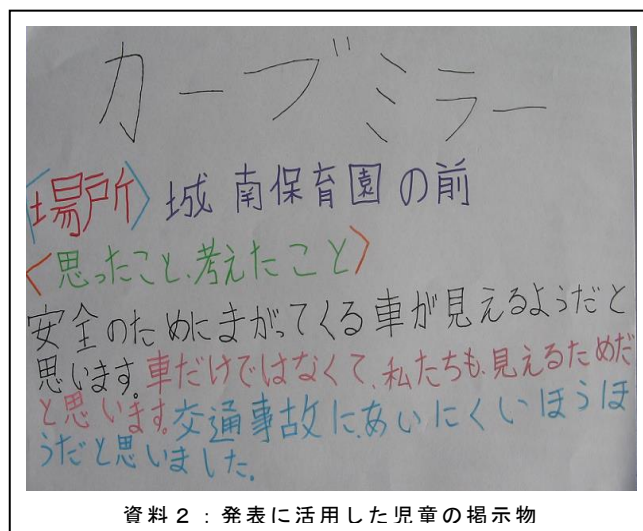 カーブミラー
〈場所〉 城南保育園の前
〈思ったこと、考えたこと〉
安全のためにまがってくる車が見えるようだと
思います。車だけではなくて、私たちも、見えるためだ
と思います。交通事故に、あいにくいほうほ
うだと思いました。
資料2:発表に活用した児童の掲示物